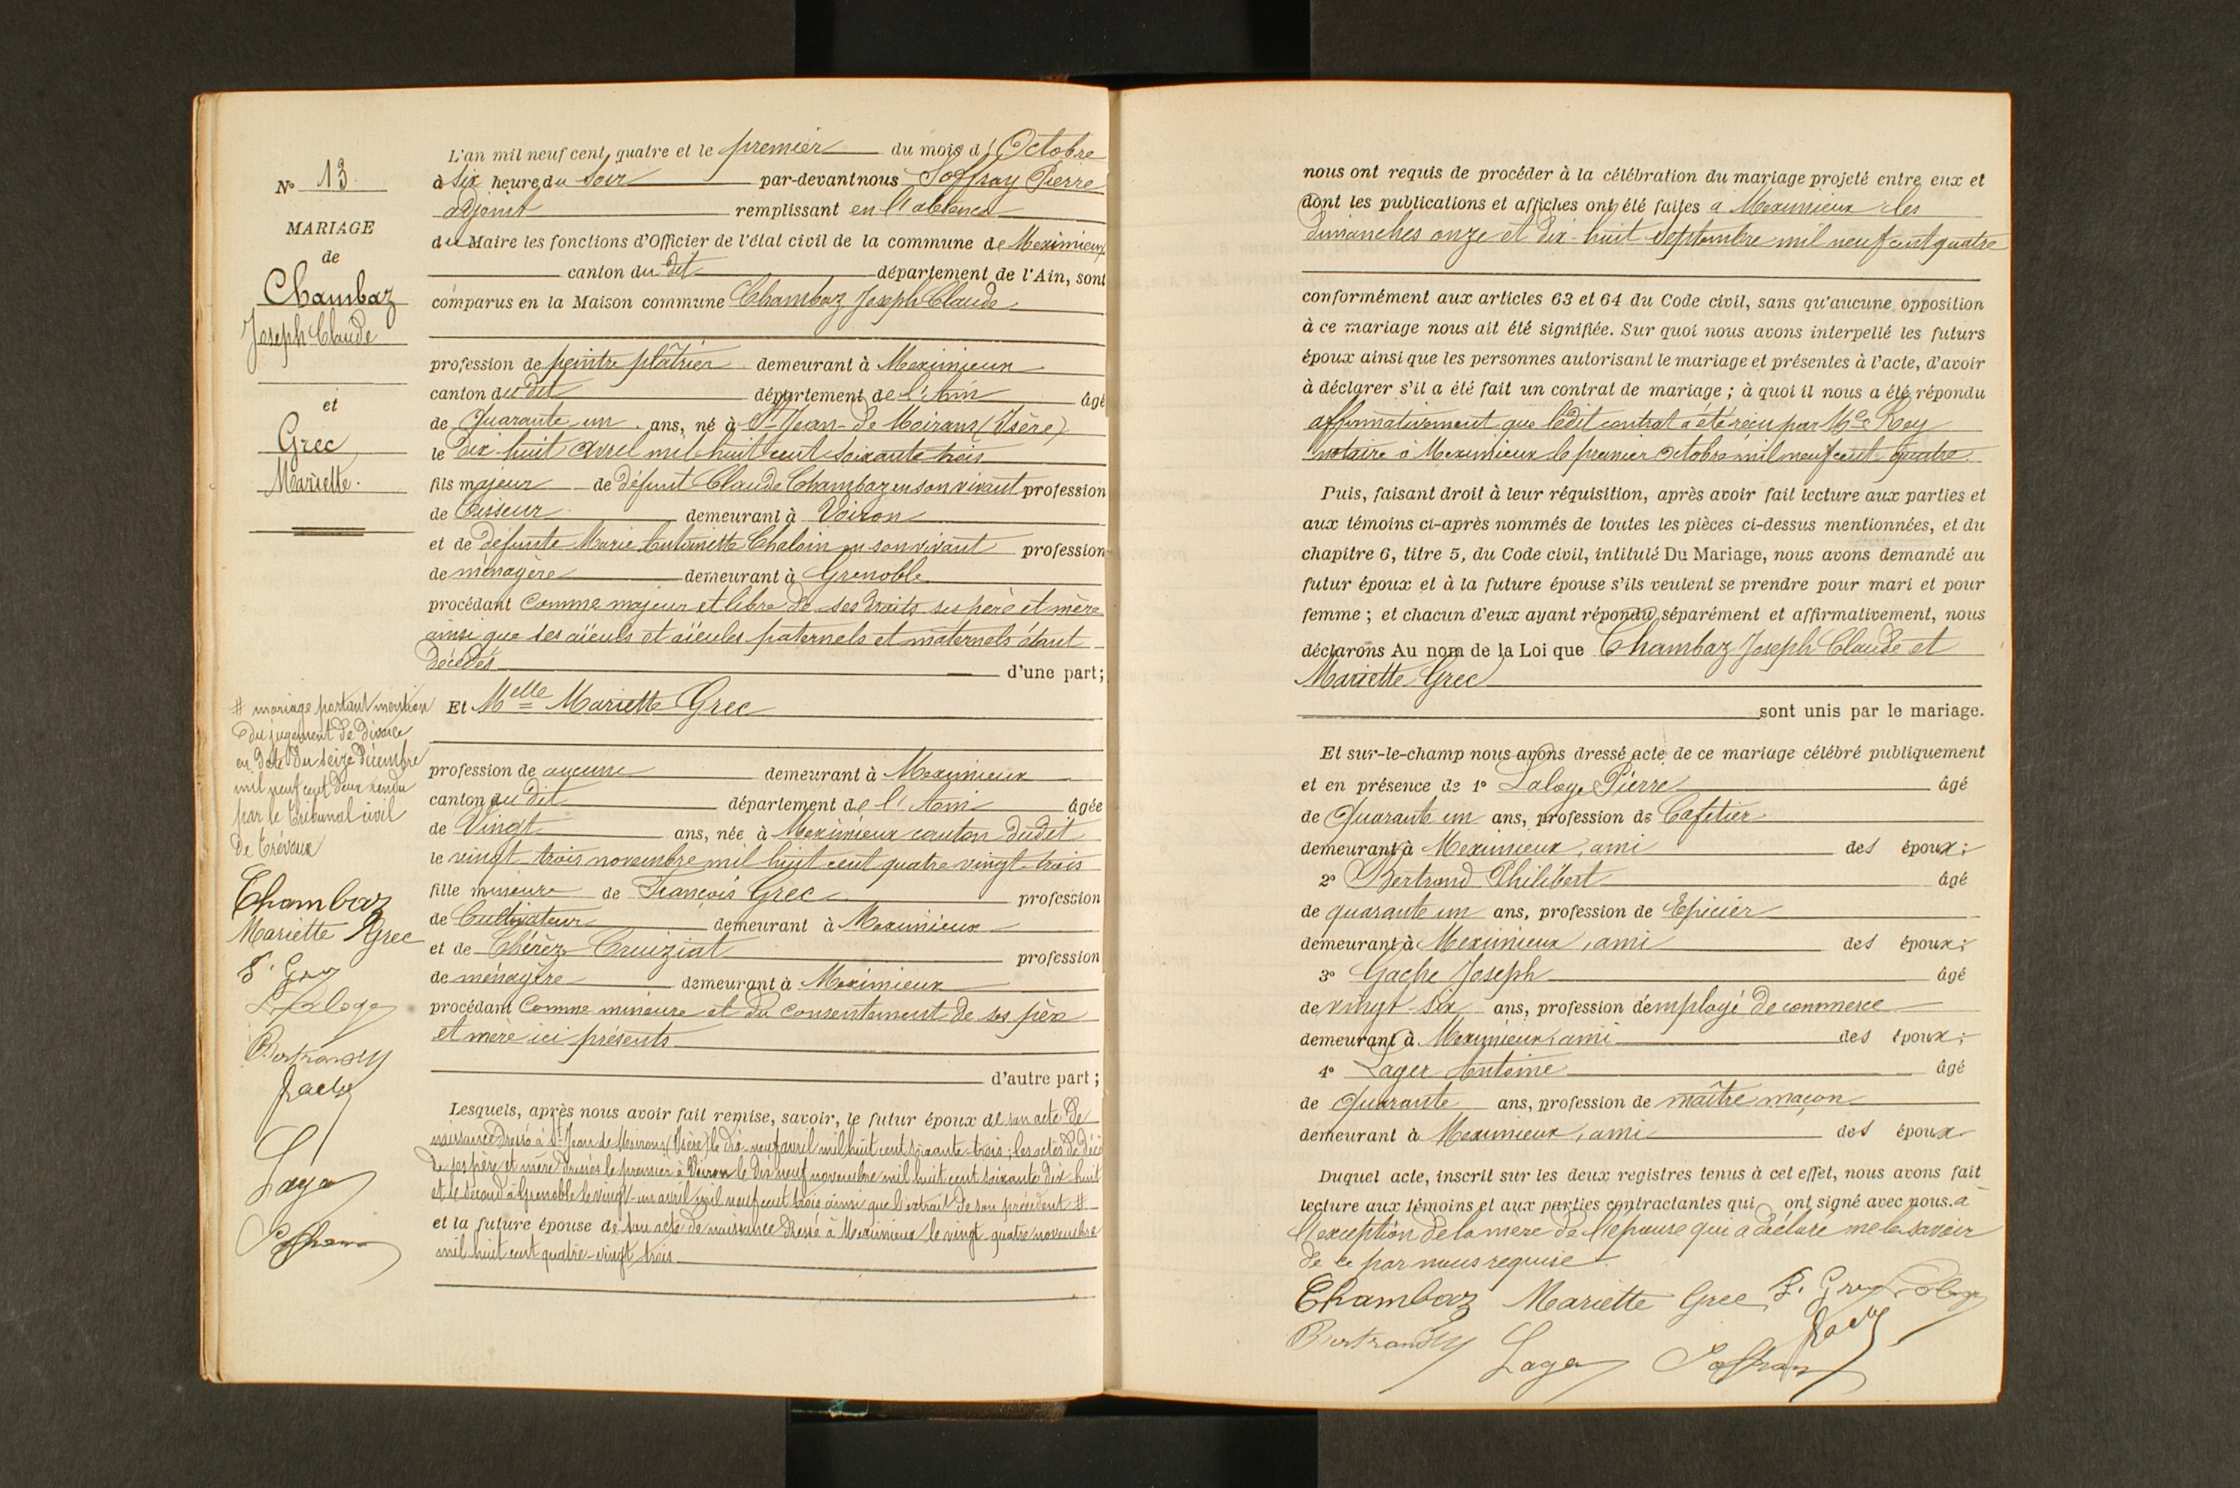 N° 13
MARIAGE
de
Chambaz
Joseph Claude
et
Grec
Mariette.
# mariage portant mention
du jugement de divorce
en date du seize Décembre
mil neuf cent deux rendu
par le Tribunal civil
de Trévoux
Chambaz
Mariette Grec
F. Grec
P. Laloge
Bertrand
Gache
Lager
Soffray
L'an mil neuf cent quatre et le premier du mois d'Octobre
à six heure du soir par-devant nous Soffray Pierre
adjoint remplissant en l'absence
du Maire les fonctions d'Officier de l'état civil de la commune de Meximieux
canton du dit département de l'Ain, sont
comparus en la Maison commune Chambaz Joseph Claude
profession de peintre plâtrier demeurant à Meximieux
canton du dit département de l'Ain âgé
de Quarante un ans, né à St-Jean-de Moirans (Isère)
le dix huit avril mil huit cent soixante trois
fils majeur de défunt Claude Chambaz en son vivant profession
de Tisseur demeurant à Voiron
et de défunte Marie Antoinette Chaloin en son vivant profession
de ménagère demeurant à Grenoble
procédant comme majeur et libre de ses droits ses père et mère
ainsi que ses aïeuls et aïeules paternels et maternels étant
décédés d'une part;
Et Melle Mariette Grec
profession de aucune demeurant à Meximieux
canton du dit département de l'Ain âgée
de Vingt ans, née à Meximieux canton dudit
le vingt trois novembre mil huit cent quatre vingt trois
fille mineure de François Grec profession
de Cultivateur demeurant à Meximieux
et de Thérèz Cruiziat profession
de ménagère demeurant à Meximieux
procédant comme mineure et du consentement de ses père
et mère ici présents
d'autre part;
Lesquels, après nous avoir fait remise, savoir, le futur époux de son acte de
naissance dressé à St Jean de Moirans (Isère) le dix-neuf avril mil huit cent soixante-trois; les actes de décès
de ses père et mère dressés le premier à Voiron le dix neuf novembre mil huit cent soixante dix huit
et le second à Grenoble le vingt-un avril mil neuf cent trois ainsi que l'extrait de son précédent #
et la future épouse de son acte de naissance dressé à Meximieux le vingt quatre novembre
mil huit cent quatre-vingt trois
nous ont requis de procéder à la célébration du mariage projeté entre eux et
dont les publications et affiches ont été faites à Meximieux les
dimanches onze et dix-huit septembre mil neuf cent quatre
conformément aux articles 63 et 64 du Code civil, sans qu'aucune opposition
à ce mariage nous ait été signifiée. Sur quoi nous avons interpellé les futurs
époux ainsi que les personnes autorisant le mariage et présentes à l'acte, d'avoir
à déclarer s'il a été fait un contrat de mariage; à quoi il nous a été répondu
affirmativement que ledit contrat a été reçu par Me Rey
notaire à Meximieux le premier octobre mil neuf cent quatre
Puis, faisant droit à leur réquisition, après avoir fait lecture aux parties et
aux témoins ci-après nommés de toutes les pièces ci-dessus mentionnées, et du
chapitre 6, titre 5, du Code civil, intitulé Du Mariage, nous avons demandé au
futur époux et à la future épouse s'ils veulent se prendre pour mari et pour
femme; et chacun d'eux ayant répondu séparément et affirmativement, nous
déclarons Au nom de la Loi que Chambaz Joseph Claude et
Mariette Grec
sont unis par le mariage.
Et sur-le-champ nous avons dressé acte de ce mariage célébré publiquement
et en présence de 1° Laloge Pierre âgé
de Quarante un ans, profession de Cafetier
demeurant à Meximieux, ami des époux;
2° Bertrand Philibert âgé
de quarante un ans, profession de Epicier
demeurant à Meximieux, ami des époux;
3° Gache Joseph âgé
de vingt-six ans, profession d'employé de commerce
demeurant à Meximieux, ami des époux;
4° Lager Antoine âgé
de Quarante ans, profession de maître maçon
demeurant à Meximieux, ami des époux
Duquel acte, inscrit sur les deux registres tenus à cet effet, nous avons fait
lecture aux témoins et aux parties contractantes qui ont signé avec nous. à
l'exception de la mère de l'épouse qui a déclaré ne le savoir
de ce par nous requise
Chambaz Mariette Grec F. Grec P. Laloge
Bertrand Lager Gache Soffray